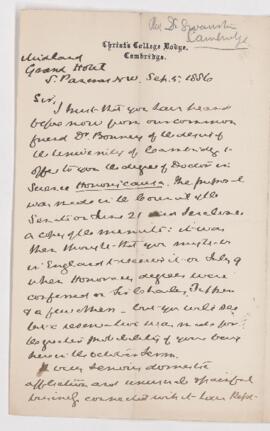 Rev Dr Swainson
Cambridge
Christ's College Lodge,
Cambridge.
Midland
Grand Hotel
S. Pancras N.W. Sep. 5. 1886
Sir,
I trust that you have heard
before now from our common
friend Dr Bonney of the desire of
the University of Cambridge to
offer to you the degree of Doctor in
Science Honoris causa. The proposal
was made in the Council of the
Senate on June 21 and I enclose
a copy of the minute: it was
then thought that you might be
in England to receive it on July 9
when Honorary degrees were
conferred on Sir Charles Tupper
& a few others — but you will see
that a reservation was made for
the greater probability of your being
here in the October Term.
A very serious domestic
affliction and unusual & painful
business connected with it have kept